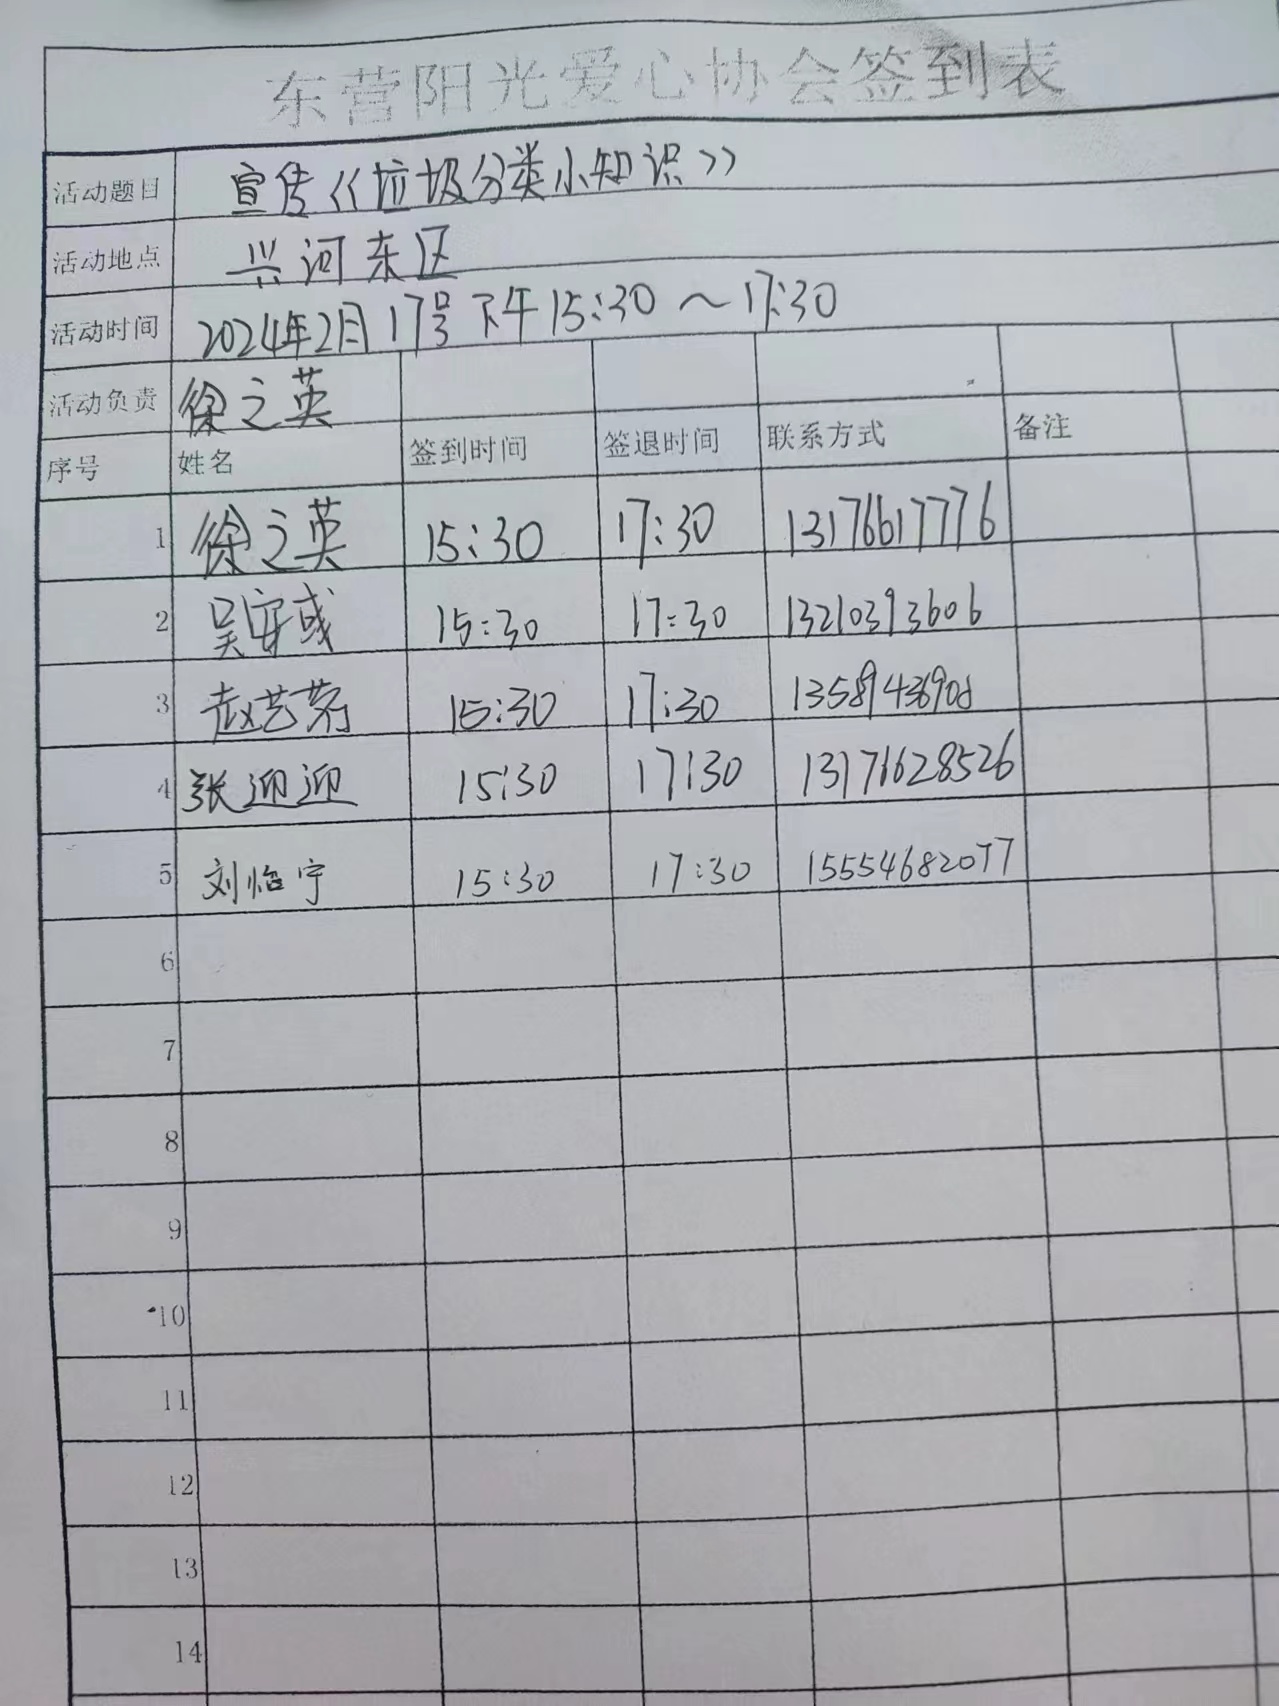 东营阳光爱心协会签到表
活动题目 宣传《垃圾分类小知识》
活动地点 兴河东区
活动时间 2024年2月17号下午15:30～17:30
活动负责 徐之英
序号 姓名 签到时间 签退时间 联系方式 备注
1 徐之英 15:30 17:30 13176617776
2 15:30 17:30 13210393606
3 15:30 17:30
4 张迎迎 15:30 17:30 13171628526
5 刘怡宁 15:30 17:30 15554682077
6
7
8
9
10
11
12
13
14